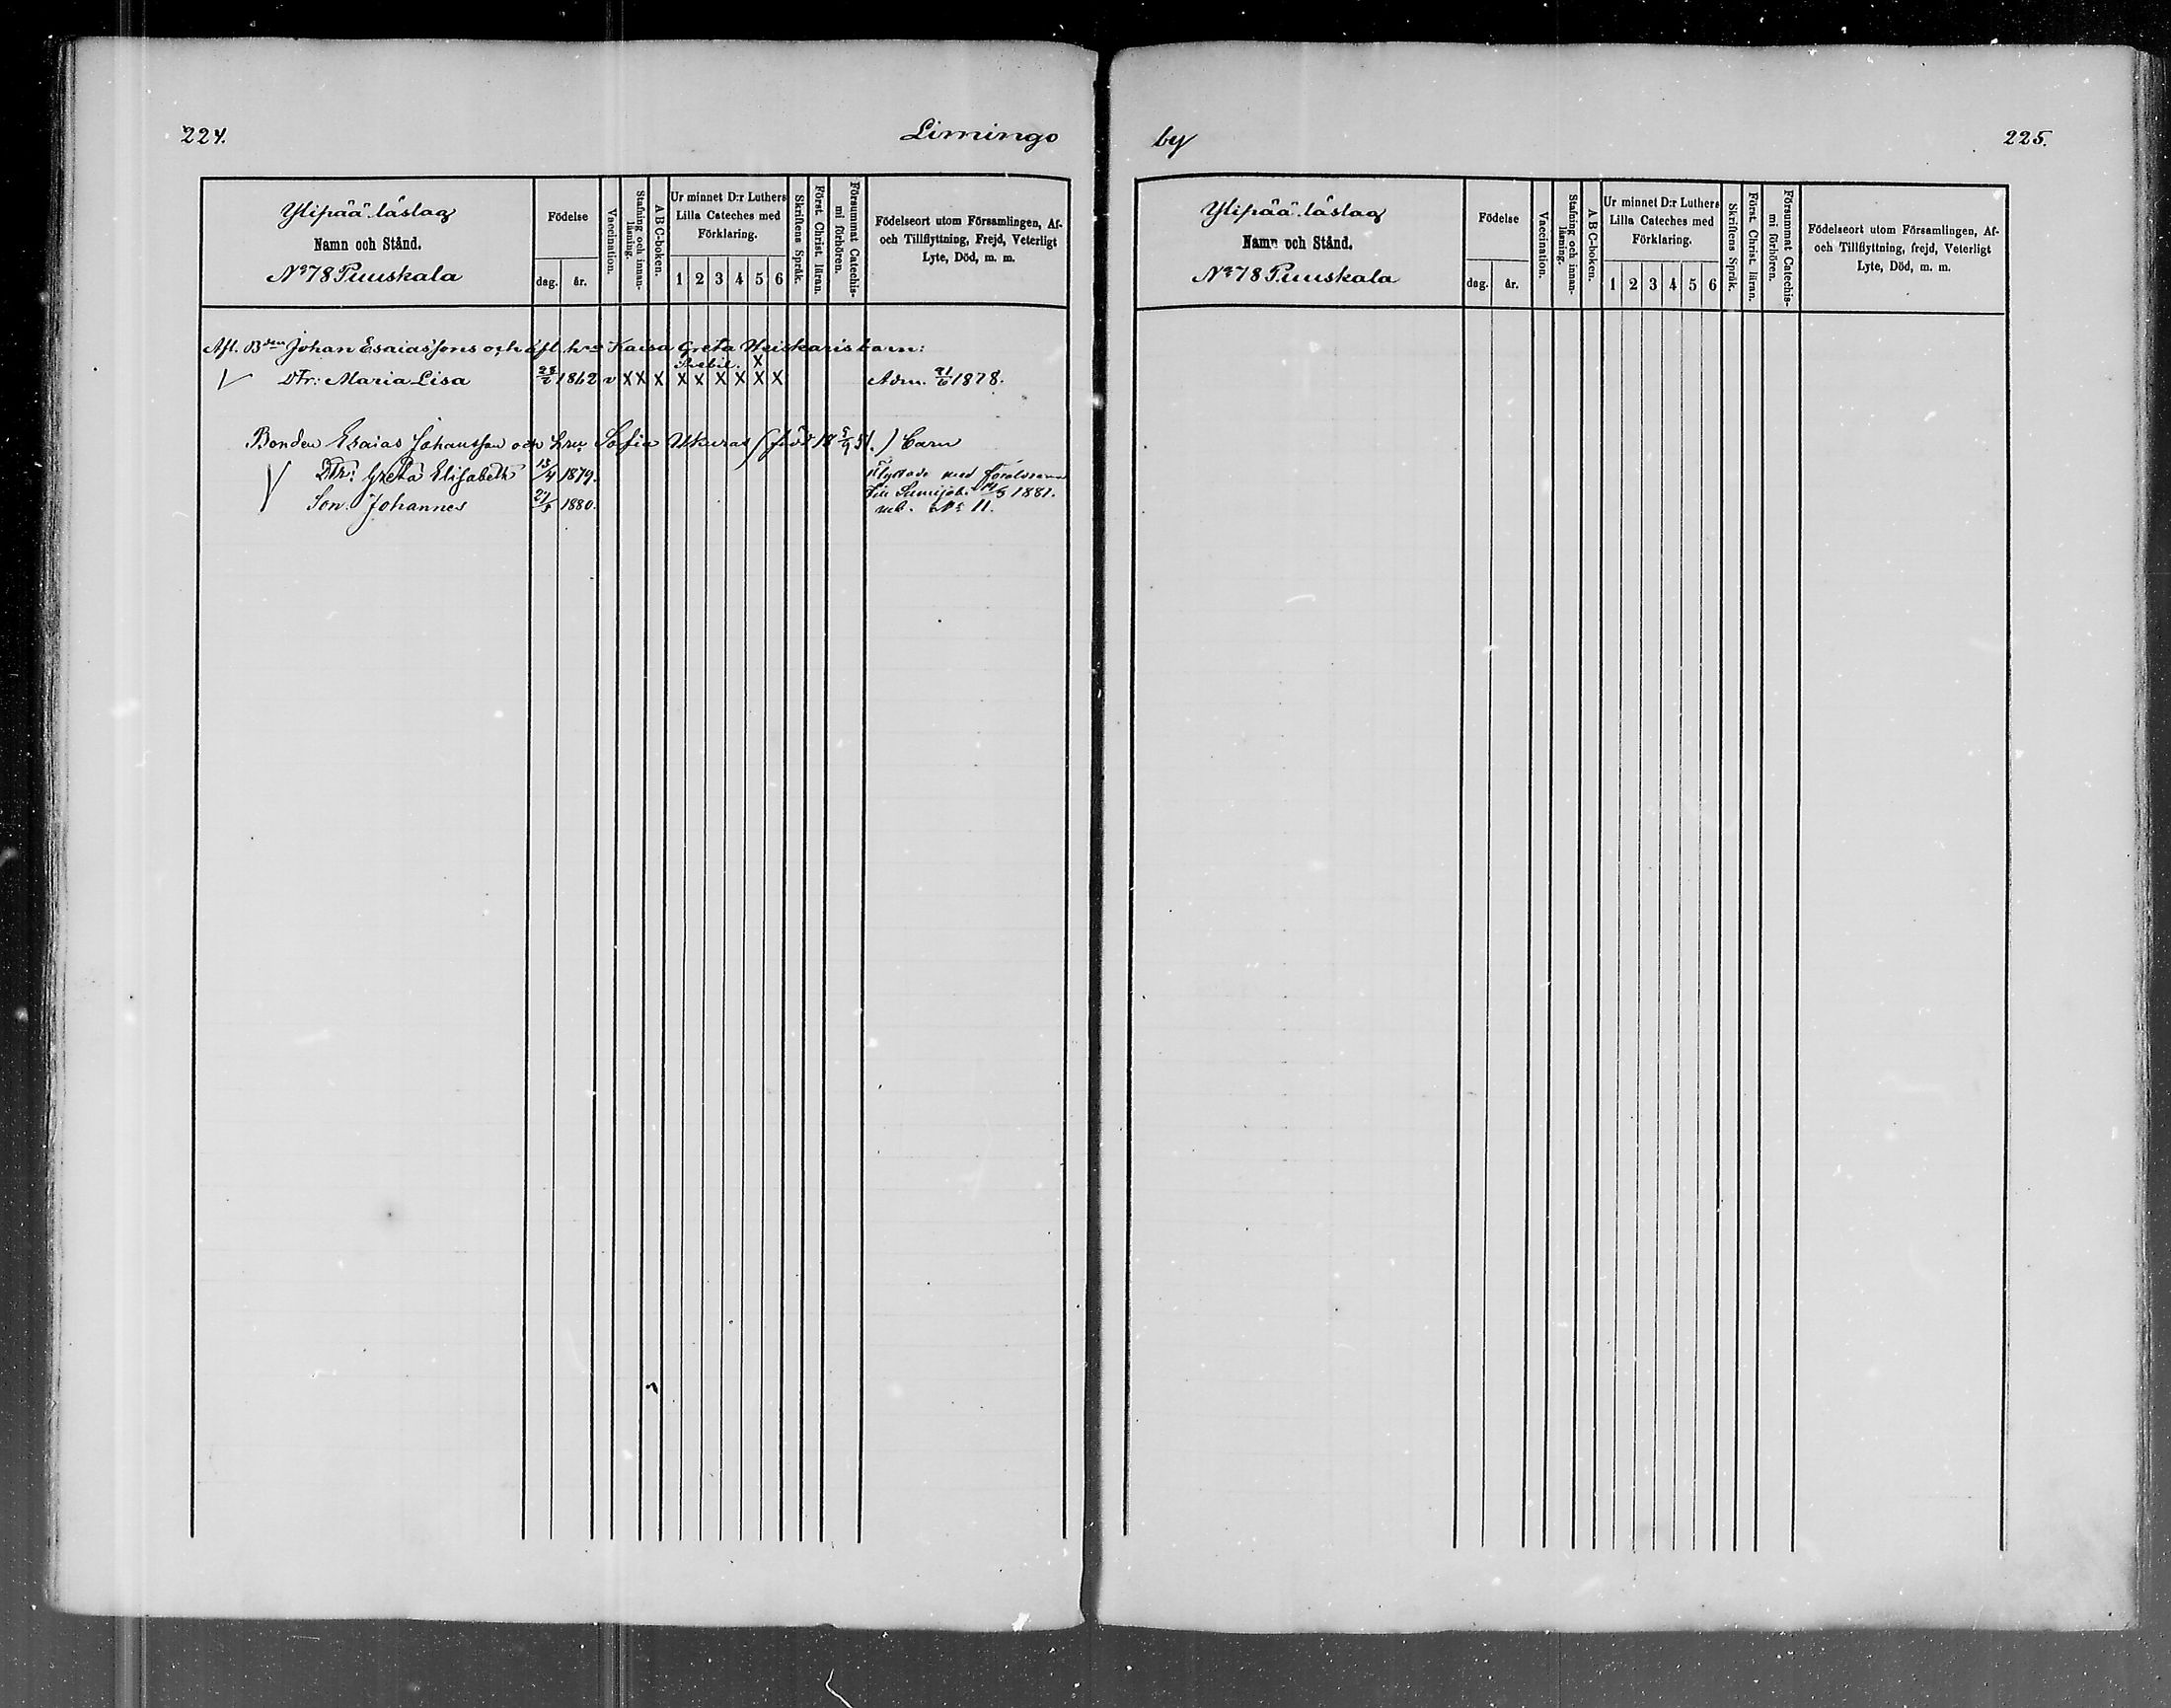 224.
Limingo
Ylipää läslag
Namn och Stånd.
No 78 Puuskala
Födelse
dag. år.
Vaccination.
Stafning och innanläsning.
A B C-boken.
Ur minnet D:r Luthers
Lilla Cateches med
Förklaring.
1 2 3 4 5 6
Skriftens Språk.
Först. Christ. läran.
Försummat Catechismi förhören.
Födelseort utom Församlingen, Af-
och Tillflyttning, Frejd, Veterligt
Lyte, Död, m. m.
Afl. Bden Johan Esaiassons och afl. hrs Kaisa Greta Heiskaris barn:
X
Dtr: Maria Lisa 1862 v X X X X X X X X X Adm. 1878.
Bonden Esaias Johansson och hru Sofia Ukuras (född 18 5/9 51.) barn
Dtr: Greta Elisabeth 13/4 1879. flyttade med föräldrarna
till Lumijoki 1881.
Son. Johannes 1880. No 11.
by
225.
Ylipää läslag
Namn och Stånd.
No 78 Puuskala
Födelse
dag. år.
Vaccination.
Stafning och innanläsning.
A B C-boken.
Ur minnet D:r Luthers
Lilla Cateches med
Förklaring.
1 2 3 4 5 6
Skriftens Språk.
Först. Christ. läran.
Försummat Catechismi förhören.
Födelseort utom Församlingen, Af-
och Tillflyttning, frejd, Veterligt
Lyte, Död, m. m.